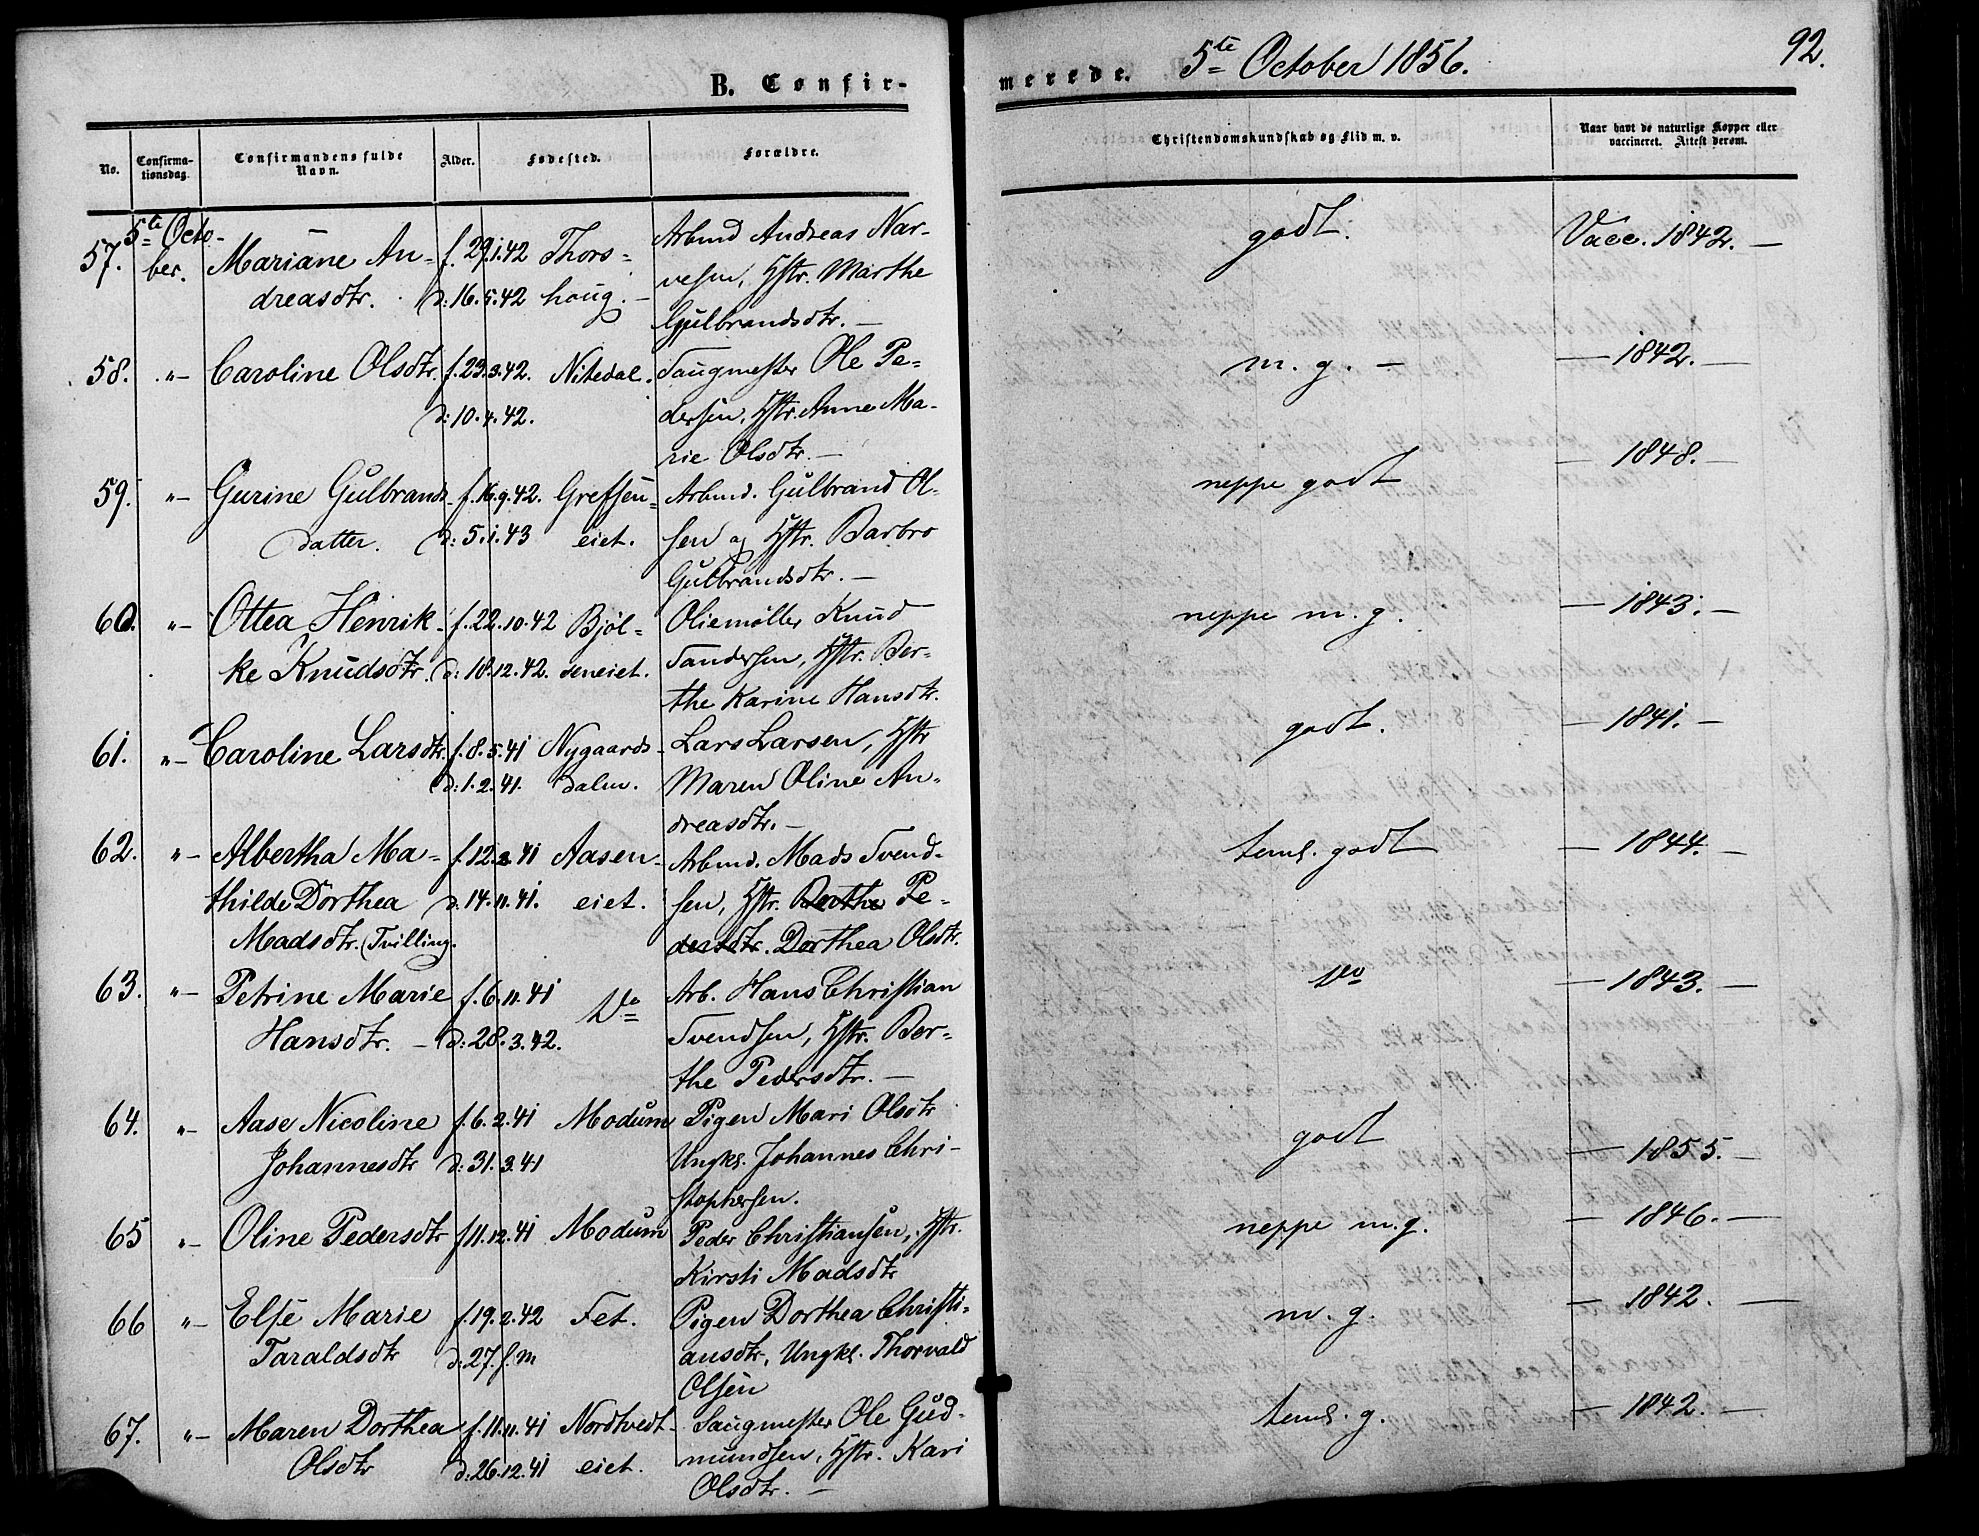 B. Confir-
merede. 5te October 1856.
92.
No.
Confirma-
tionsdag.
Confirmandens fulde
Navn.
Alder.
Fødested.
Forældre.
Christendomskundskab og Flid m. v.
Naar havt de naturlige Kopper eller
vaccineret. Attest derom.
57. 5te Octo-
ber.
Mariane An-
dreasdtr.
f. 29.1.42
d: 16.5.42
Thors-
houg. -
Arbmd Andreas Nar-
vesen, Hstr. Marthe
Gulbrandsdtr. -
godt.
Vacc. 1842. -
58. "- Caroline Olsdtr.
f. 23.3.42.
d: 10.4.42.
Nitedal.
Saugmester Ole Pe-
dersen, Hstr. Anne Ma-
rie Olsdtr. -
m. g. -
- 1842. -
59. "- Gurine Gulbrands
datter.
f. 16.9.42.
d: 5.1.43
Grefsen-
eiet.
Arbmd. Gulbrand Ol-
sen og Hstr. Barbro
Gulbrandsdtr. -
neppe godt
- 1848. -
60. "- Ottea Henrik-
ke Knudsdtr.
f. 22.10.42
d: 18.12.42.
Bjøl-
seneiet.
Oliemøller Knud
Sandersen, Hstr. Ber-
the Karine Hansdtr.
neppe m. g.
- 1843. -
61. "- Caroline Larsdtr.
f. 8.5.41
d: 1.2.41.
Nygaards-
dalen.
Lars Larsen, Hstr
Maren Oline An-
dreasdtr. -
godt.
- 1841. -
62. "- Albertha Ma-
thilde Dorthea
Madsdtr. (Tvilling.
f. 12.2.41
d. 14.11.41.
Aasen-
eiet.
Arbmd. Mads Svend-
sen, Hstr. Berthe Pe-
dersdtr. Dorthea Olsdtr.
teml. godt
- 1844. -
63. "- Petrine Marie
Hansdtr. -
f. 6.11.41
d: 28.3.42.
Do
Arb. Hans Christian
Svendsen, Hstr. Ber-
the Pedersdtr. -
Do
- 1843. -
64. "- Aase Nicoline
Johannesdtr
f. 6.2.41
d: 31.3.41
Modum
Pigen Mari Olsdtr
Ungkl. Johannes Chri-
stophersen.
godt
- 1855. -
65 "- Oline Pedersdtr
f 11.12.41
Modum
Peder Christiansen, Hstr.
Kirsti Madsdtr
neppe m. g.
- 1846. -
66 "- Else Marie
Taraldsdtr
f. 19.2.42
d: 27. s. m
Fet.
Pigen Dorthea Christi-
ansdtr, Ungkl. Thorvald
Olsen
m. g.
- 1842. -
67. "- Maren Dorthea
Olsdtr
f. 11.11.41
d: 26.12.41
Nordtvedt-
eiet.
Saugmester Ole Gud-
mundsen, Hstr. Kari
Olsdtr. -
teml. g.
- 1842. -